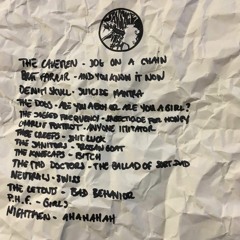 THE CAVEMEN - DOG ON A CHAIN
BEAT FARRIR - AND YOU KNOW IT NOW
DEMIT SKULL - SUICIDE MANTRA
THE DOGS - ARE YOU A BOY OR ARE YOU A GIRL?
THE JAGGED FREQUENCY - INSECTICIDE FOR MONEY
CHARLIE FOXTROT - ANYONE IMITATOR
THEE CREEPS - SHIT LUCK
THE JANITORS - TROJAN GOAT
THE KNEECAPS - BITCH
THE MAD DOCTORS - THE BALLAD OF
NEUTRALS - SWISS
THE CUTOUTS - BAD BEHAVIOR
P.H.F. - GIRLS
NIGHTMEN - AHAHAHAH